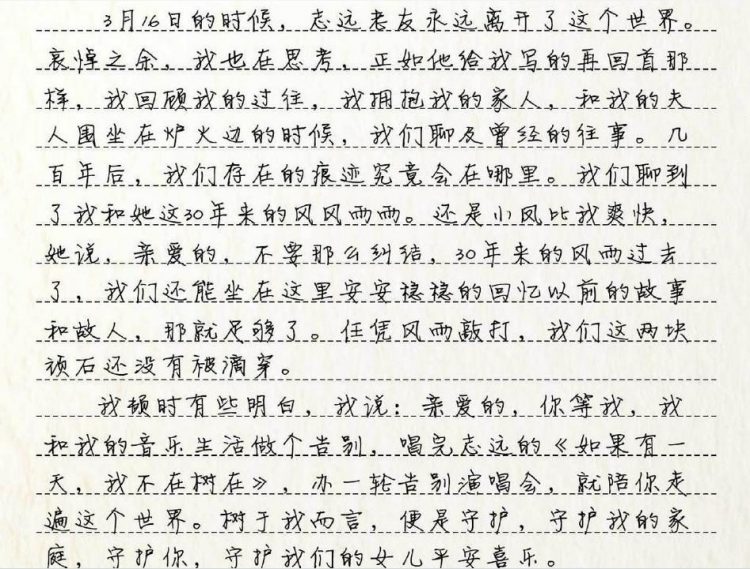 3月16日的时候，志远老友永远离开了这个世界。
哀悼之余，我也在思考，正如他给我写的再回首那
样，我回顾我的过往，我拥抱我的家人，和我的夫
人围坐在炉火边的时候，我们聊及曾经的往事。几
百年后，我们存在的痕迹究竟会在哪里。我们聊到
了我和她这30年来的风风雨雨。还是小凤比我爽快，
她说，亲爱的，不要那么纠结，30年来的风雨过去
了，我们还能坐在这里安安稳稳的回忆以前的故事
和故人，那就足够了。任凭风雨敲打，我们这两块
顽石还没有被滴穿。
我顿时有些明白，我说：亲爱的，你等我，我
和我的音乐生活做个告别，唱完志远的《如果有一
天，我不在树在》，办一轮告别演唱会，就陪你走
遍这个世界。树于我而言，便是守护，守护我的家
庭，守护你，守护我们的女儿平安喜乐。